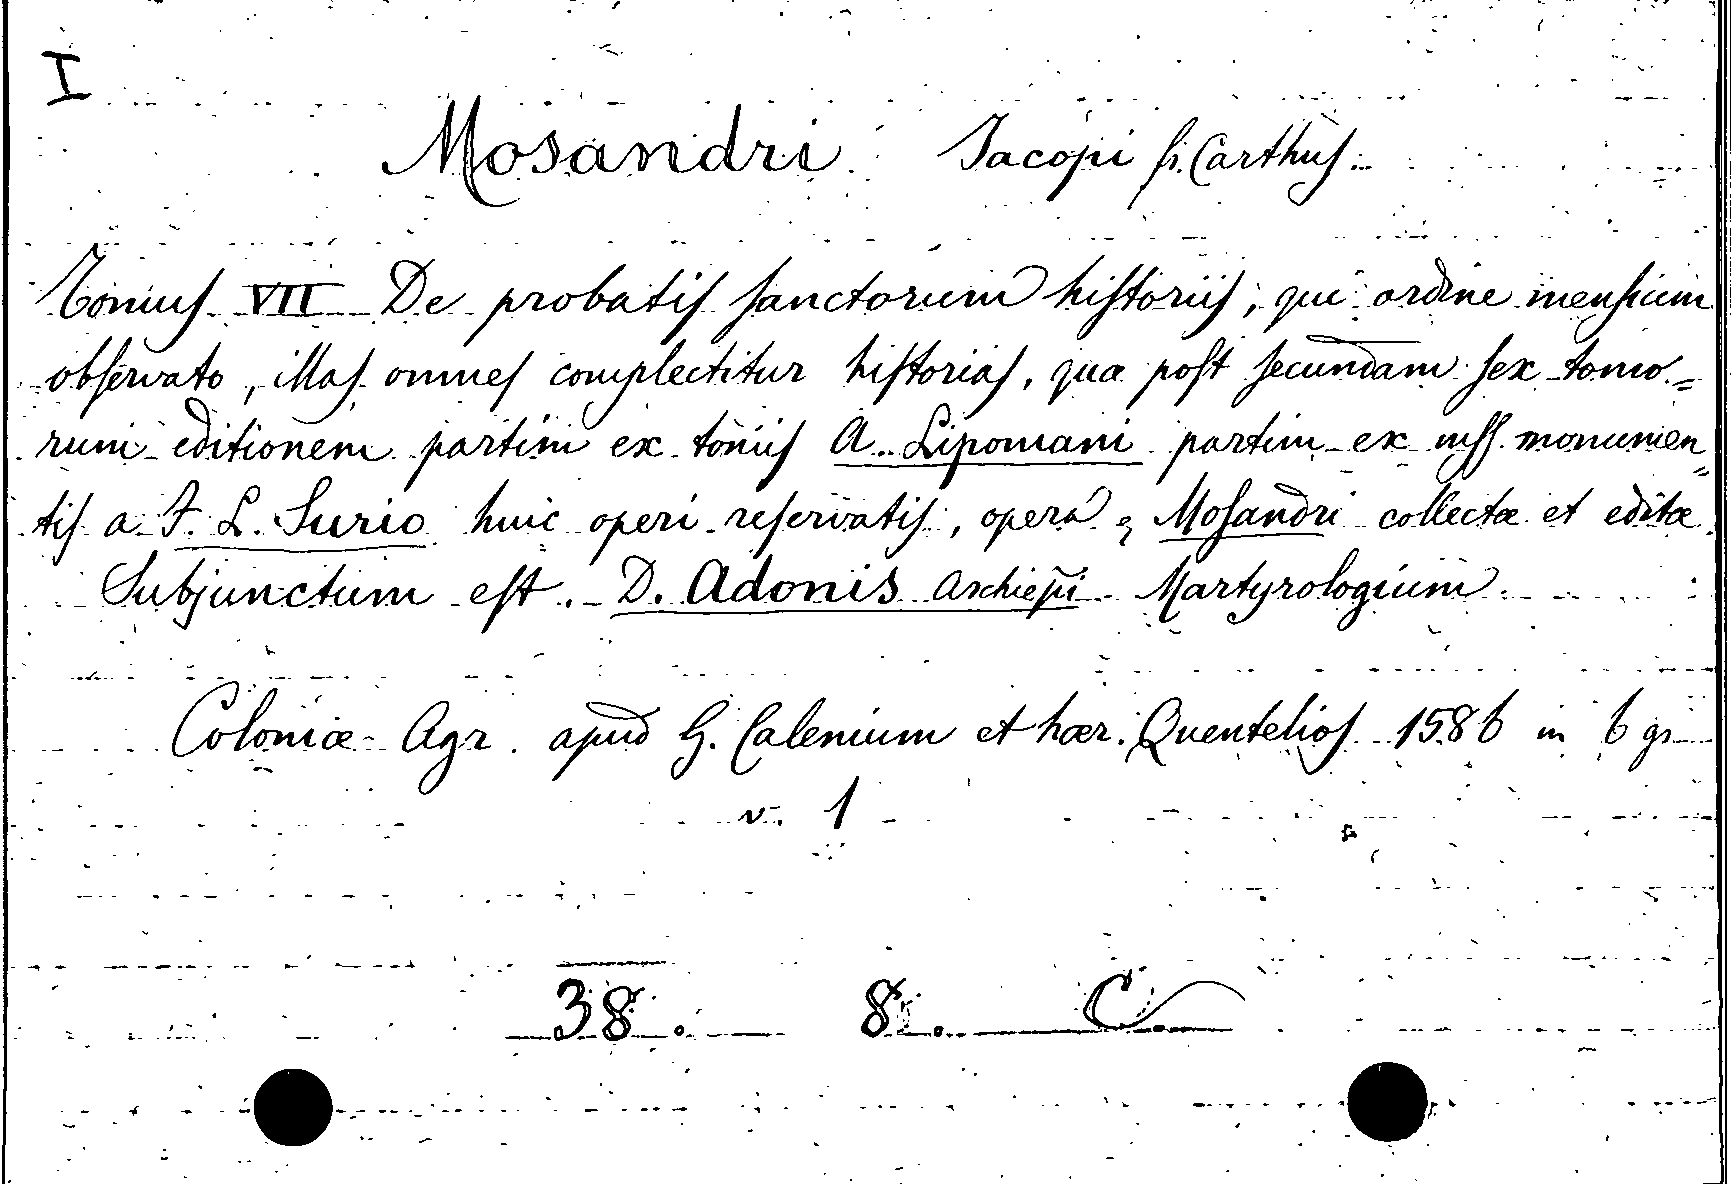 I
Mosandri Jacopi fr. Carthus.
Tomus VII De probatis sanctorum historiis, qui ordine mensium
observato, illas omnes complectitur historias, quæ post secundam sex tomo=
rum editionem partim ex tomis A. Lipomani partim ex mss. monumen=
tis a F. L. Surio huic operi reservatis, opera Mosandri collectæ et editæ.
Subjunctum est. D. Adonis Archiepi Martyrologium.
Coloniæ Agr. apud G. Calenium et hær. Quentelios 1586 in 6 gr
v. 1
38. 8. C.